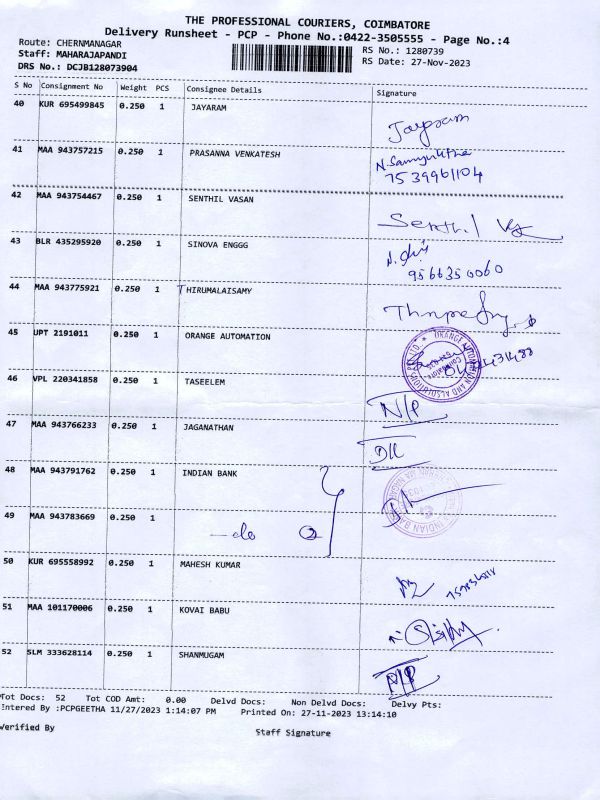 THE PROFESSIONAL COURIERS, COIMBATORE
Delivery Runsheet - PCP - Phone No.:0422-3505555 - Page No.:4
Route: CHERNMANAGAR
Staff: MAHARAJAPANDI
DRS No.: DCJB128073904
RS No.: 1280739
RS Date: 27-Nov-2023
S No Consignment No Weight PCS Consignee Details Signature
40 KUR 695499845 0.250 1 JAYARAM
Jayaram
41 MAA 943757215 0.250 1 PRASANNA VENKATESH
N. Samyuktha
7539961104
42 MAA 943754467 0.250 1 SENTHIL VASAN
Senthil
43 BLR 435295920 0.250 1 SINOVA ENGGG
9566350060
44 MAA 943775921 0.250 1 THIRUMALAISAMY
45 UPT 2191011 0.250 1 ORANGE AUTOMATION
46 VPL 220341858 0.250 1 TASEELEM
N/P
47 MAA 943766233 0.250 1 JAGANATHAN
DL
48 MAA 943791762 0.250 1 INDIAN BANK
INDIAN BANK
49 MAA 943783669 0.250 1
-do 2
50 KUR 695558992 0.250 1 MAHESH KUMAR
51 MAA 101170006 0.250 1 KOVAI BABU
52 SLM 333628114 0.250 1 SHANMUGAM
N/P
Tot Docs: 52 Tot COD Amt: 0.00 Delvd Docs: Non Delvd Docs: Delvy Pts:
Entered By :PCPGEETHA 11/27/2023 1:14:07 PM Printed On: 27-11-2023 13:14:10
Verified By
Staff Signature